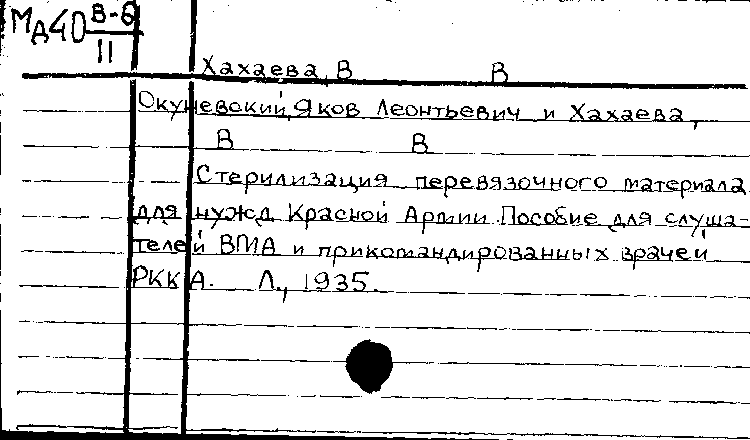 Мд40 В-6
II
Хахаева, В В
Окуневский, Яков Леонтьевич и Хахаева,
В В
Стерилизация перевязочного материала
для нужд Красной Армии. Пособие для слуша-
телей ВМА и прикомандированных врачей
РККА. Л., 1935.